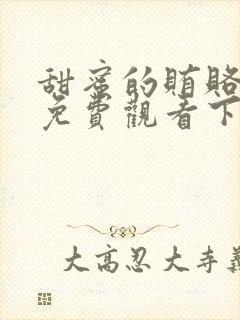 甜蜜的賄賂
免費觀看下
大高忍大寺義